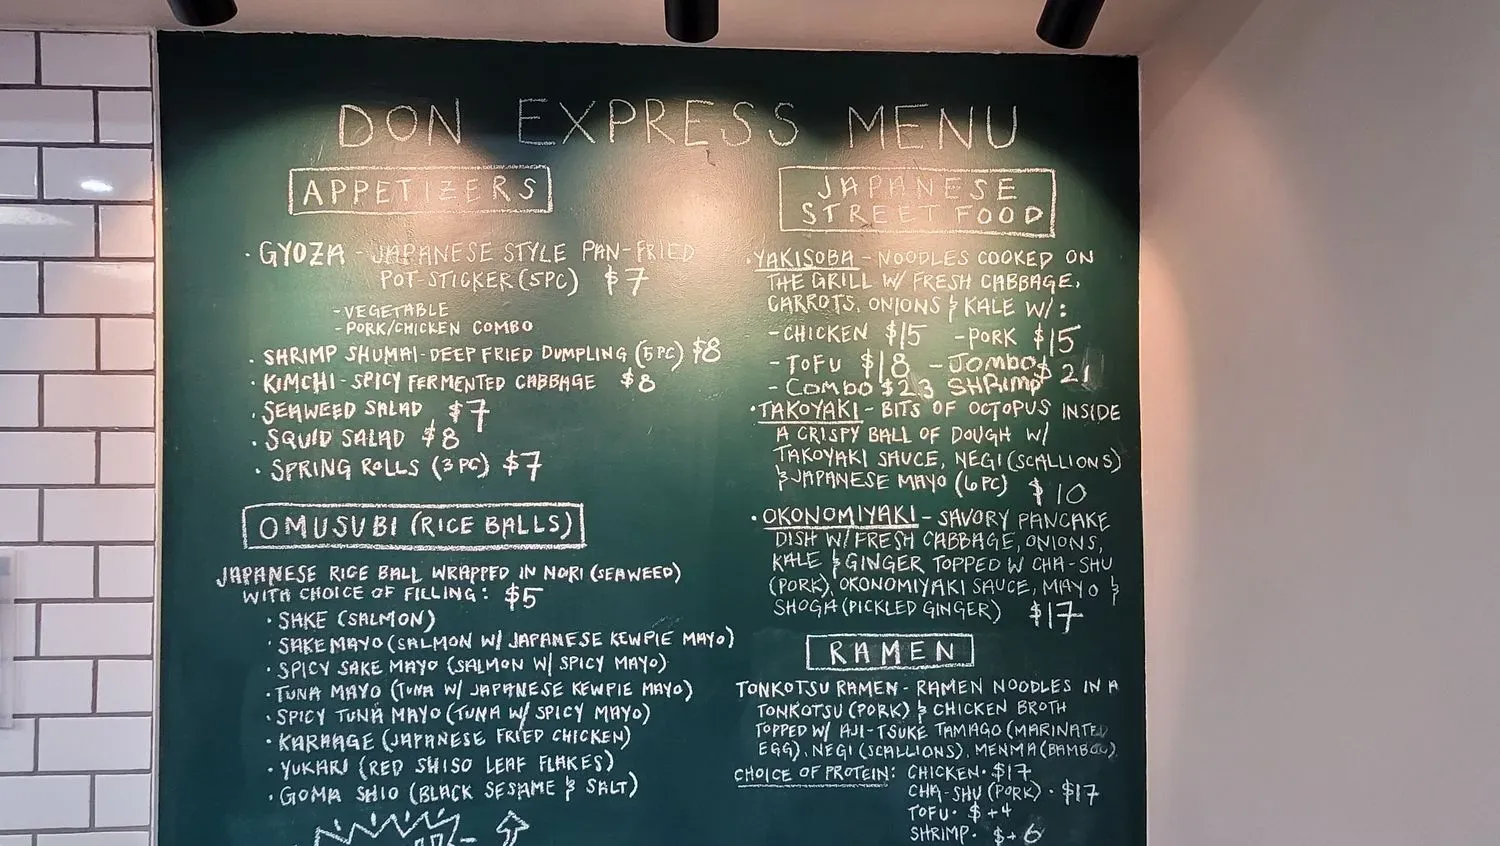 DON EXPRESS MENU
APPETIZERS
• GYOZA - JAPANESE STYLE PAN-FRIED
POT-STICKER (5PC) $7
- VEGETABLE
- PORK/CHICKEN COMBO
• SHRIMP SHUMAI - DEEP FRIED DUMPLING (5PC) $8
• KIMCHI - SPICY FERMENTED CABBAGE $8
• SEAWEED SALAD $7
• SQUID SALAD $8
• SPRING ROLLS (3PC) $7
OMUSUBI (RICE BALLS)
JAPANESE RICE BALL WRAPPED IN NORI (SEAWEED)
WITH CHOICE OF FILLING: $5
• SAKE (SALMON)
• SAKE MAYO (SALMON W/ JAPANESE KEWPIE MAYO)
• SPICY SAKE MAYO (SALMON W/ SPICY MAYO)
• TUNA MAYO (TUNA W/ JAPANESE KEWPIE MAYO)
• SPICY TUNA MAYO (TUNA W/ SPICY MAYO)
• KARAAGE (JAPANESE FRIED CHICKEN)
• YUKARI (RED SHISO LEAF FLAKES)
• GOMA SHIO (BLACK SESAME & SALT)
JAPANESE
STREET FOOD
• YAKISOBA - NOODLES COOKED ON
THE GRILL W/ FRESH CABBAGE,
CARROTS, ONIONS & KALE W/:
- CHICKEN $15 - PORK $15
- TOFU $18 - JOMBO $21
- COMBO $23 SHRIMP
• TAKOYAKI - BITS OF OCTOPUS INSIDE
A CRISPY BALL OF DOUGH W/
TAKOYAKI SAUCE, NEGI (SCALLIONS)
& JAPANESE MAYO (6PC) $10
• OKONOMIYAKI - SAVORY PANCAKE
DISH W/ FRESH CABBAGE, ONIONS,
KALE & GINGER TOPPED W CHA-SHU
(PORK), OKONOMIYAKI SAUCE, MAYO &
SHOGA (PICKLED GINGER) $17
RAMEN
TONKOTSU RAMEN - RAMEN NOODLES IN A
TONKOTSU (PORK) & CHICKEN BROTH
TOPPED W/ AJI-TSUKE TAMAGO (MARINATED
EGG), NEGI (SCALLIONS), MENMA (BAMBOO).
CHOICE OF PROTEIN: CHICKEN • $17
CHA-SHU (PORK) • $17
TOFU • $+4
SHRIMP • $+6